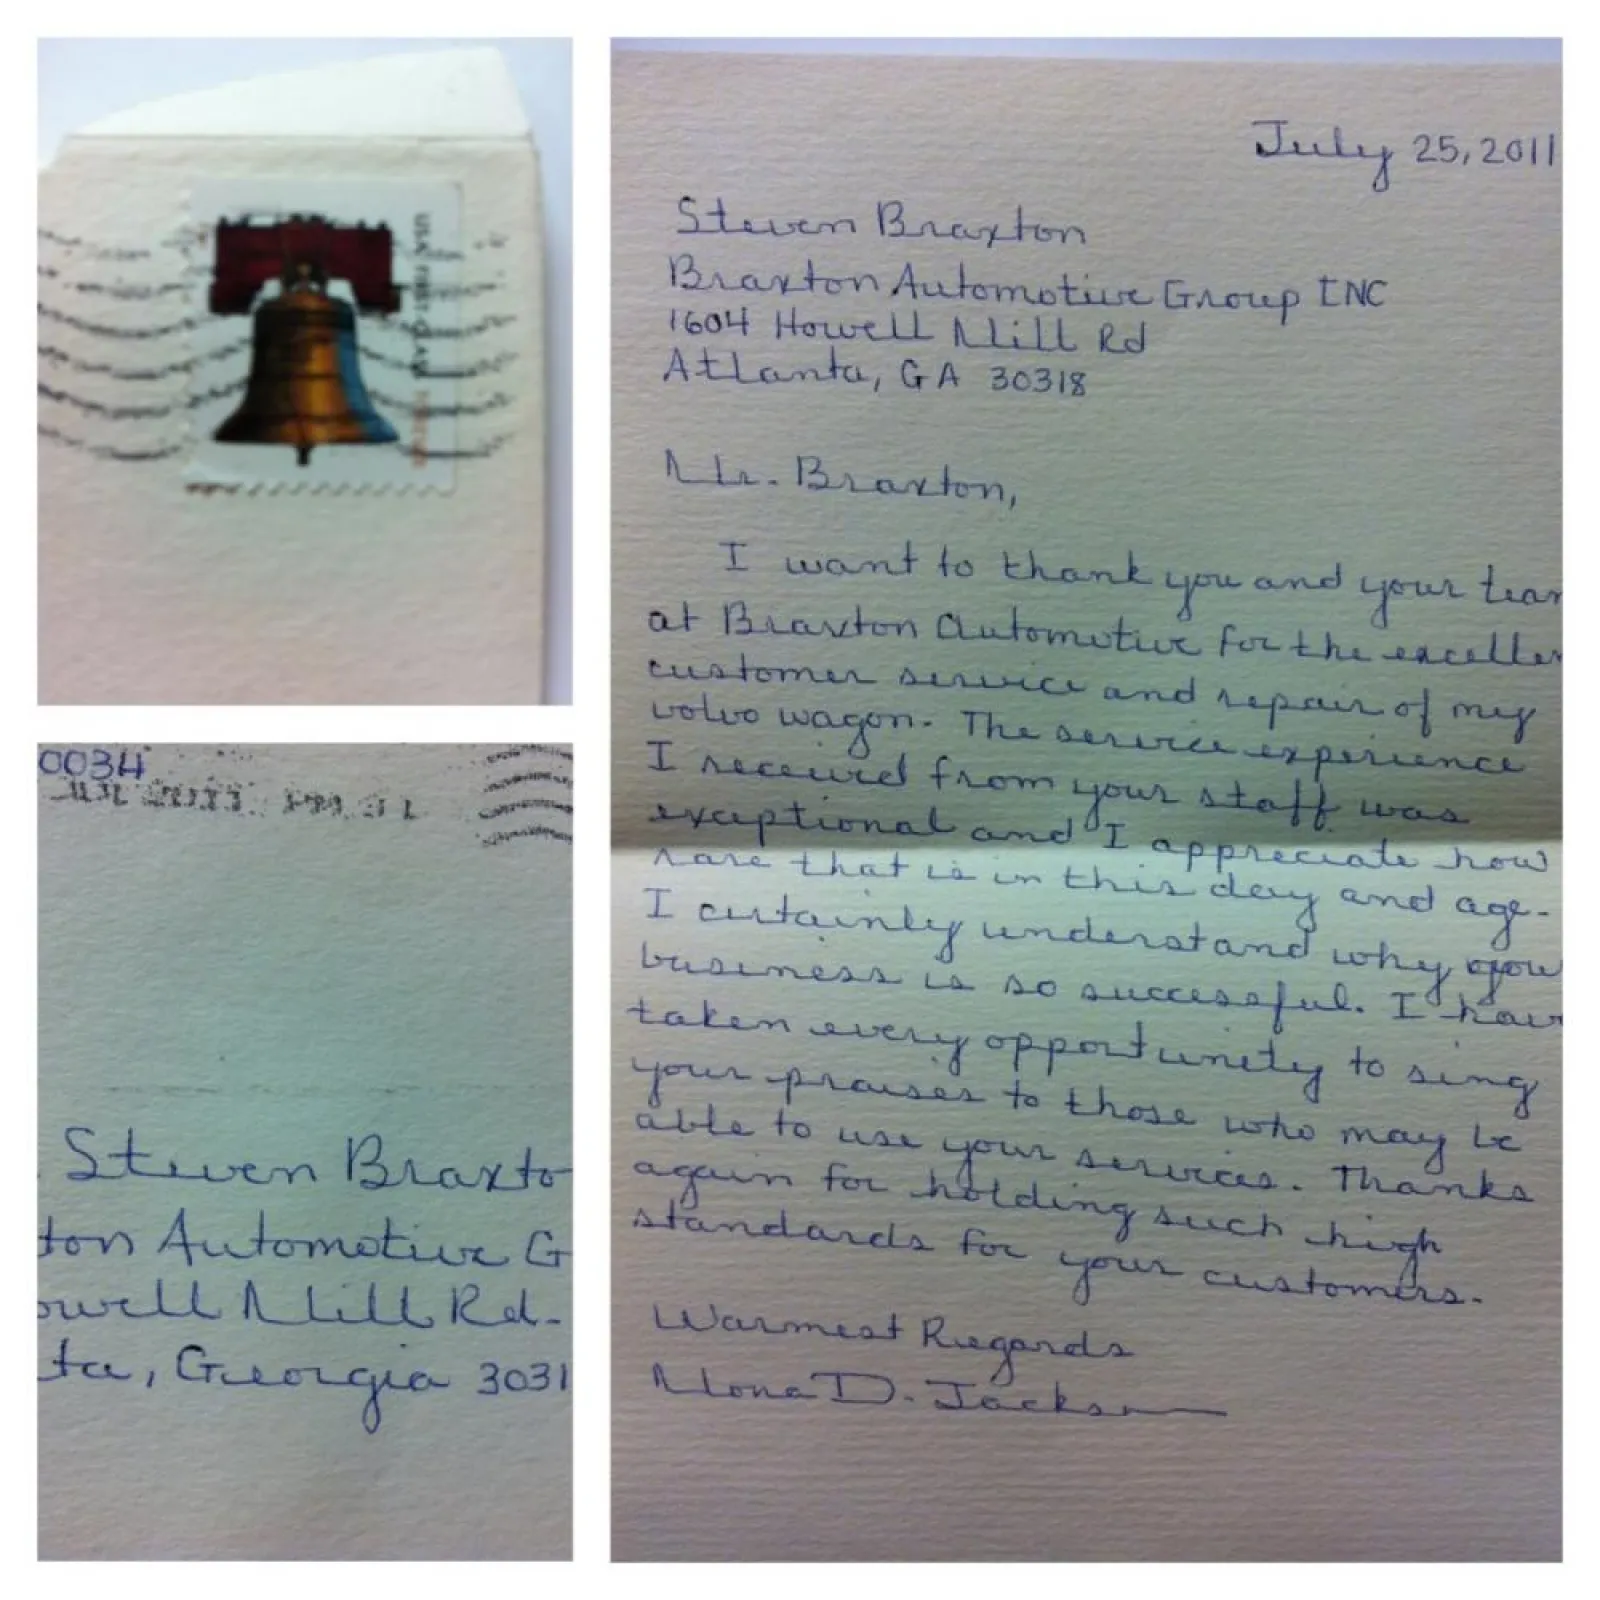 USA FIRST-CLASS
FOREVER
0034
JUL 2011 PM
Steven Braxto
ton Automotive G
owell Mill Rd.
ta, Georgia 3031
July 25, 2011
Steven Braxton
Braxton Automotive Group INC
1604 Howell Mill Rd
Atlanta, GA 30318
Mr. Braxton,
I want to thank you and your team
at Braxton Automotive for the excellen
customer service and repair of my
volvo wagon. The service experience
I received from your staff was
exceptional and I appreciate how
rare that is in this day and age.
I certainly understand why your
business is so successful. I have
taken every opportunity to sing
your praises to those who may be
able to use your services. Thanks
again for holding such high
standards for your customers.
Warmest Regards
Mona D. Jackson